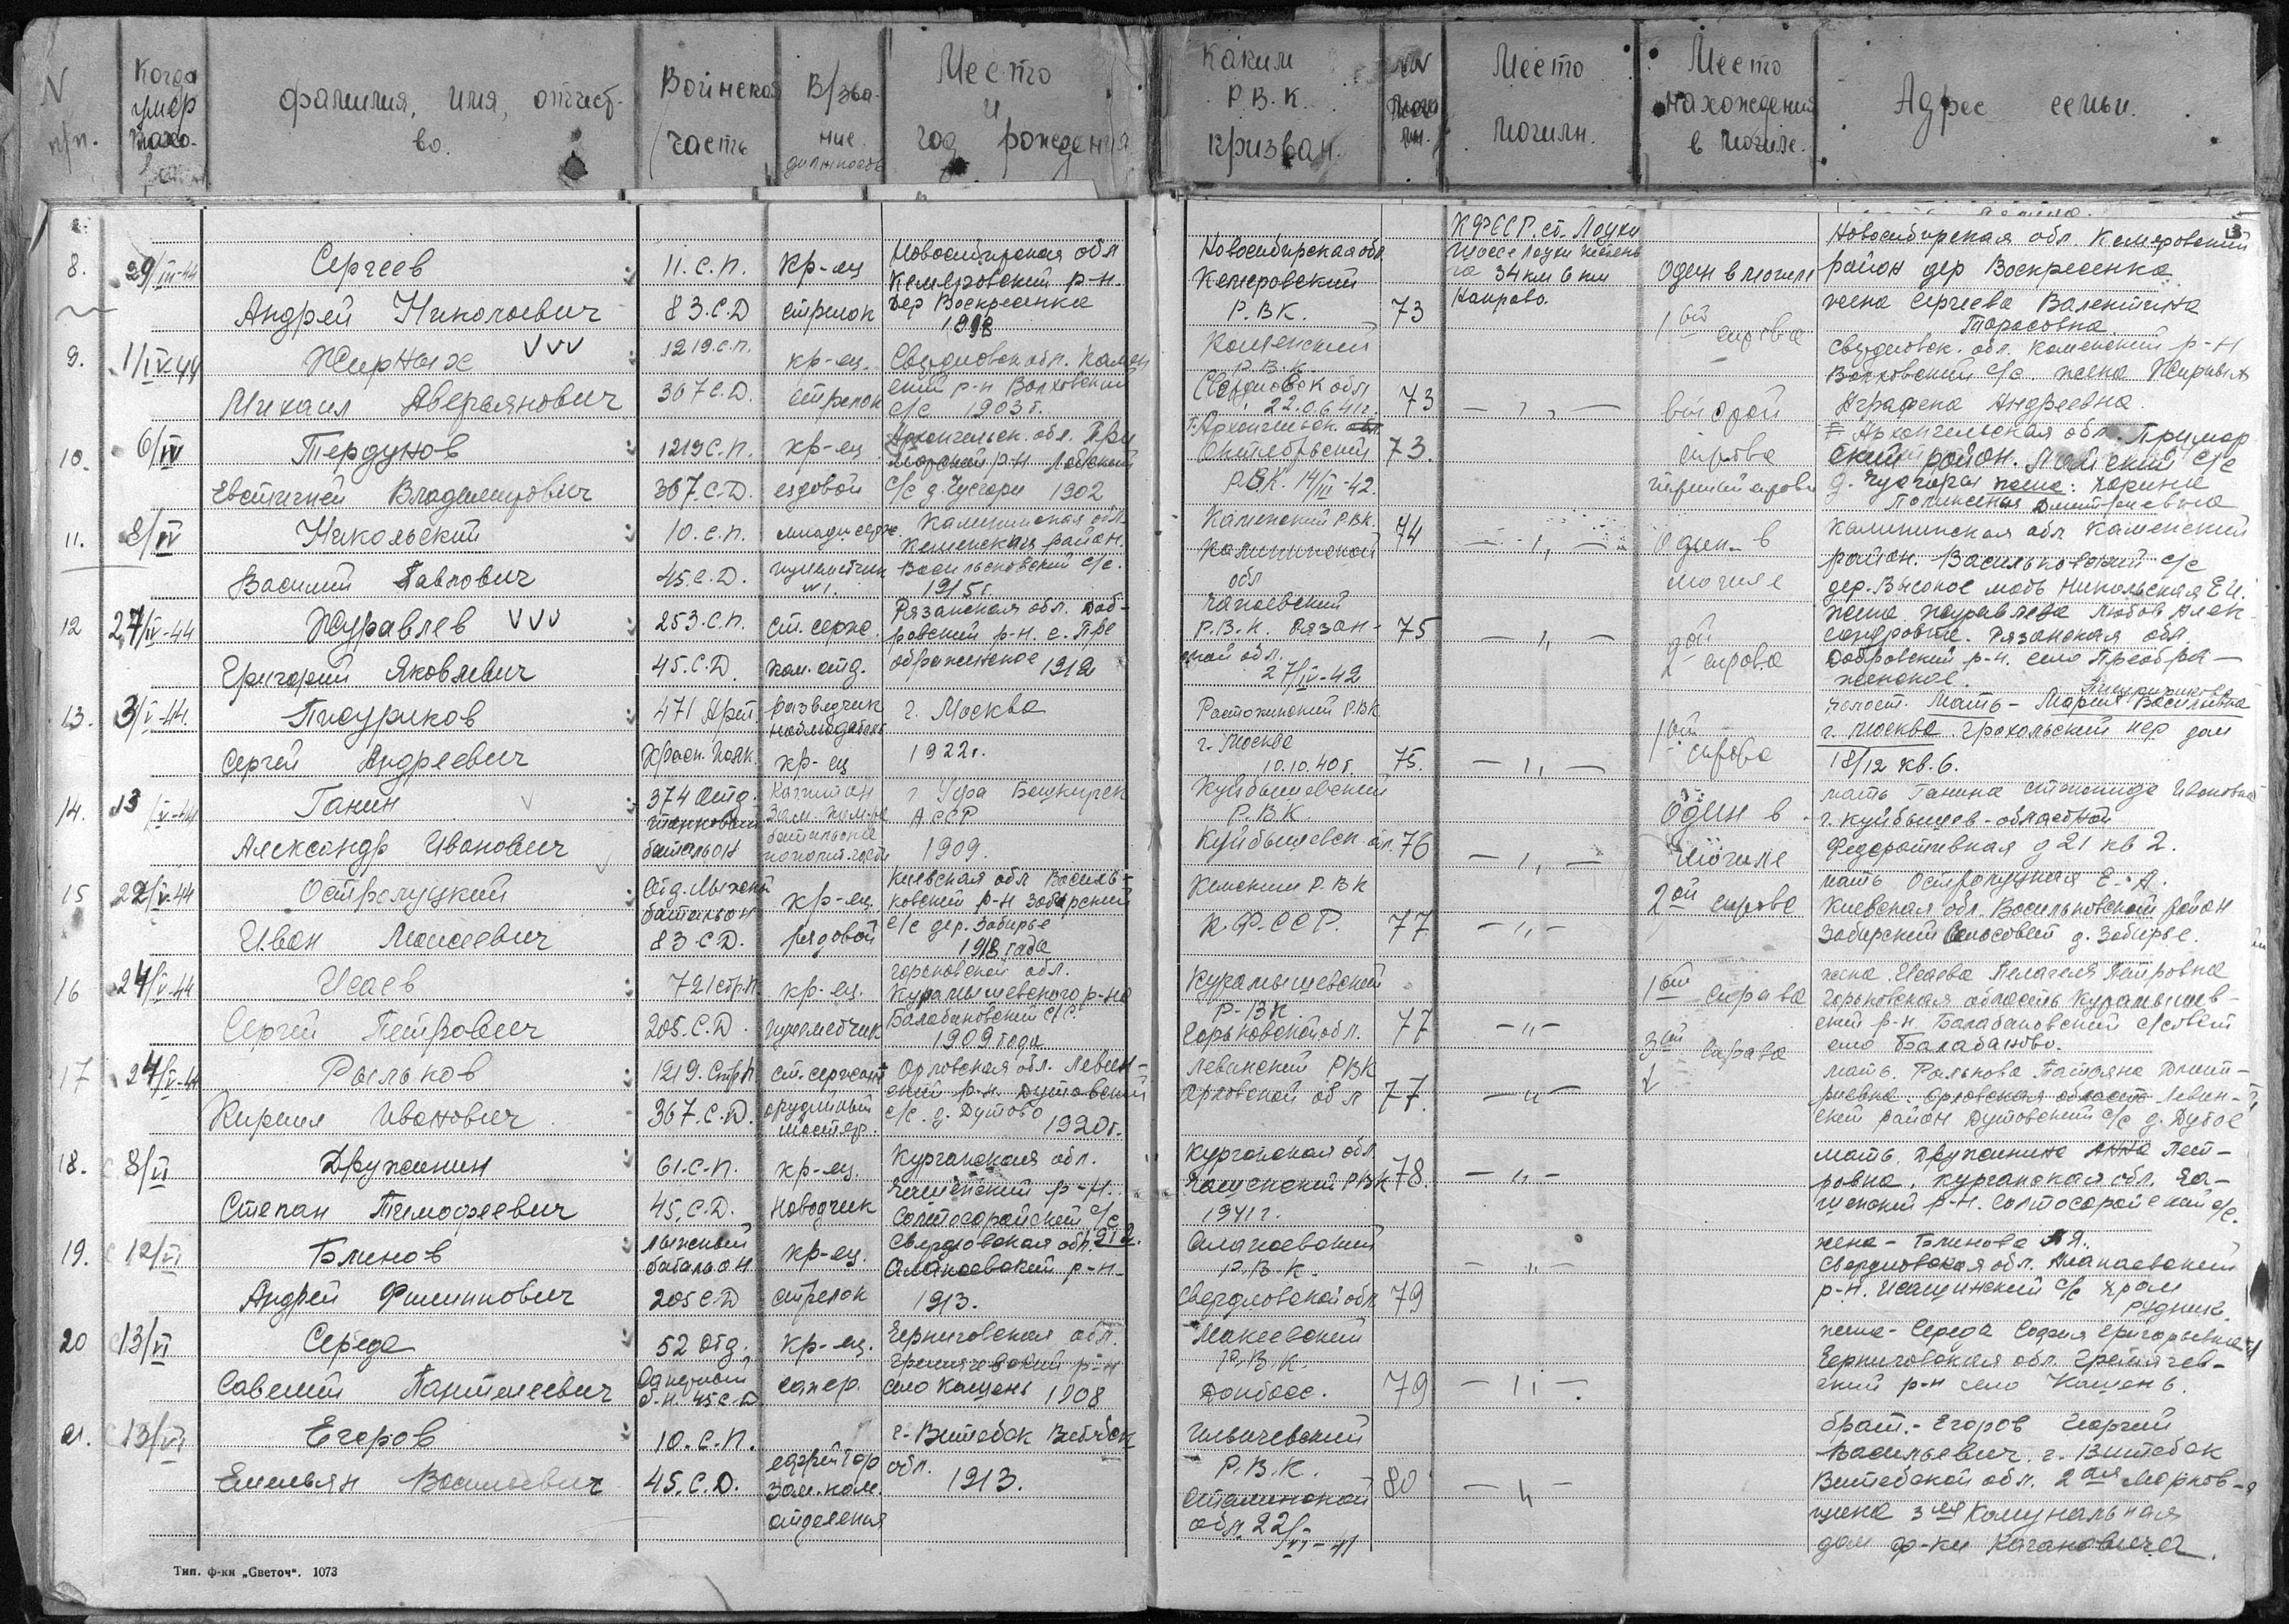 N п/п.
Когда умер похо-
фамилия, имя, отчест-
во.
Воинская
часть
В/зва-
ние
должность
Место
и
год рождения
Каким
Р.В.К.
призван.
NN
моги
лы.
Место
могилы.
Место
нахождения
в могиле.
Адрес семьи.
8. 29/III-44 Сергеев
Андрей Николаевич
11. С.П.
83. С.Д
кр-ец
стрелок
Новосибирская обл
Кемеровский р-н.
дер Воскресенка
Новосибирская обл
Кемеровский
Р.ВК.
73
КФССР. ст. Лоухи
шоссе Лоухи Кестень
га 34 км 6 км
Направо
Один в могиле
Новосибирская обл. Кемеровский
район дер Воскресенка
жена Сергеева Валентина
Тарасовна.
9. 1/IV-44 Жирных VVV
Михаил Аверьянович
1219 С.П.
367 С.Д.
кр-ец.
стрелок
Свердловск обл. Камен
ский р-н Волховский
с/с 1903 г.
Каменский
Р.В.К.
Свердловск обл
22.06.41 г.
73
— „ —
1ый справа
Свердловск. обл. Каменский р-н
Волховский с/с. жена Жирных
Аграфена Андреевна.
10. 6/IV Пердунов
Евстигней Владимирович
1219 С.П.
367. С.Д.
кр-ец
ездовой
Архангельск. обл. При
морский р-н Лойский
с/с д. Чусгоры 1902
г. Архангельск.
Октябрьский
Р.В.К. 14/III-42.
73
второй
справа
Архангельская обл. Примор
ский район. Лойский с/с
д. Чусгоры жена:
Поликсенья Дмитриевна
11. 8/IV Никольский
Василий Павлович
10. С.П.
45. С.Д.
младш серж.
пулеметчик
Калининская обл.
Каменский район.
Васильковский с/с.
1915 г.
Каменский РВК.
Калининской
обл
74
— „ —
Один в
могиле
Калининская обл Каменский
район. Васильковский с/с
дер. Высокое мать Никольская Е.И.
12 27/IV-44 Журавлев VVV
Григорий Яковлевич
253. С.П.
45. С.Д
ст. серж.
ком. отд.
Рязанская обл. Доб-
ровский р-н. с. Пре
ображенское 1912
Чапаевский
Р.В.К. Рязан-
ской обл.
27/IV-42
75
— „ —
2ой справа
жена Журавлева Любовь Алек-
сандровна. Рязанская обл.
Добровский р-н. село Преобра-
женское.
13. 3/V-44.
Сергей Андреевич
471 Арт.
кр-ец
разведчик
наблюдатель
г. Москва
1922 г.
Ростокинский РВК
г. Москва
10.10.40 г.
75.
— „ —
1ый справа
холост. Мать - Мария Васильевна
г. Москва. Грохольский пер дом
18/12 кв. 6.
14. 13/V-44 Ганин
Александр Иванович
374 Отд.
танковый
батальон
Капитан
Зам. ком-ра
батальона
по полит. части
г Уфа Башкирск
АССР
1909.
Куйбышевский
Р.В.К.
Куйбышевск обл.
76
— „ —
Один в
могиле
мать Ганина Степанида Ивановна
г. Куйбышев - областной
Федоративная д 21 кв 2.
15 22/V-44 Остролуцкий
Иван Моисеевич
Отд. Лыжный
батальон
83 С.Д.
кр-ец.
рядовой
Киевская обл Василь-
ковский р-н Забирский
с/с дер. Забирье
1918 года
Кемский Р.ВК
К.Ф.ССР.
77
— „ —
2ой справа
мать Остролуцкая Е. А.
Киевская обл. Васильковский район
Забирский Сельсовет д. Забирье.
16 24/V-44 Исаев
Сергей Петрович
721 стр.п.
205. С.Д.
кр-ец.
пулеметчик
Горьковской обл.
Курамышевского р-на
Балабановский с/с
1909 года
Курамышевский
Р-ВК
Горьковской обл.
77
— „ —
1ый справа
жена Исаева Пелагея Петровна
Горьковская область Курамышев-
ский р-н. Балабановский с/совет
село Балабаново.
17 24/V-44 Рыльков
Кирилл Иванович
1219. Стр.п
367. С.Д.
ст. сержант
орудийный
мастер.
Орловская обл. Ливен-
ский р-н. Дутовский
с/с. д. Дутово 1920 г.
Ливенский РВК
Орловской обл
77.
— „ —
3ий справа
мать. Рылькова Татьяна Дмит-
риевна. Орловская область Ливен-
ский район Дутовский с/с д. Дутое
18. 8/VI Дружинин
Степан Тимофеевич
61. С.П.
45. С.Д.
кр-ец.
наводчик
Курганская обл.
Чашенский р-н.
Солтосарайский с/с
912.
Курганская обл
Чашенский РВК
1941 г.
78.
— „ —
мать. Дружинина Анна Пет-
ровна. Курганская обл. Ча-
шенский р-н. Солтосарайский с/с.
19. 12/VI Блинов
Андрей Филиппович
лыжный
батальон
205 С.Д
кр-ец.
стрелок
Свердловская обл.
Алапаевский р-н-
1913.
Алапаевский
Р.В.К.
Свердловской обл.
79
— „ —
жена - Блинова А Я.
Свердловская обл. Алапаевский
р-н. с/с
рудник.
20 13/VI Середа
Савелий Пантелеевич
52 отд.
Саперный
б-н. 45 С.Д
кр-ец.
сапер.
Черниговская обл.
Гремячевский р-н
село Кашень 1908
Макеевский
Р.В.К.
Донбасс.
79
— „ —
жена - Середа София Григорьевна
Черниговская обл. Гремячев-
ский р-н село Кашень.
21. 13/VI Егоров
Емельян Васильевич
10. С.П.
45. С.Д.
ефрейтор
зам. ком.
отделения
г. Витебск Витебск
обл. 1913.
Ильичевский
Р.В.К.
Сталинской
обл. 22/VI-41
80
— „ —
брат. - Егоров Георгий
Васильевич. г. Витебск
Витебской обл. 2ая Марков-
щина 3ья Комунальная
дом ф-ки Кагановича.
Тип. ф-ки „Светоч“. 1073